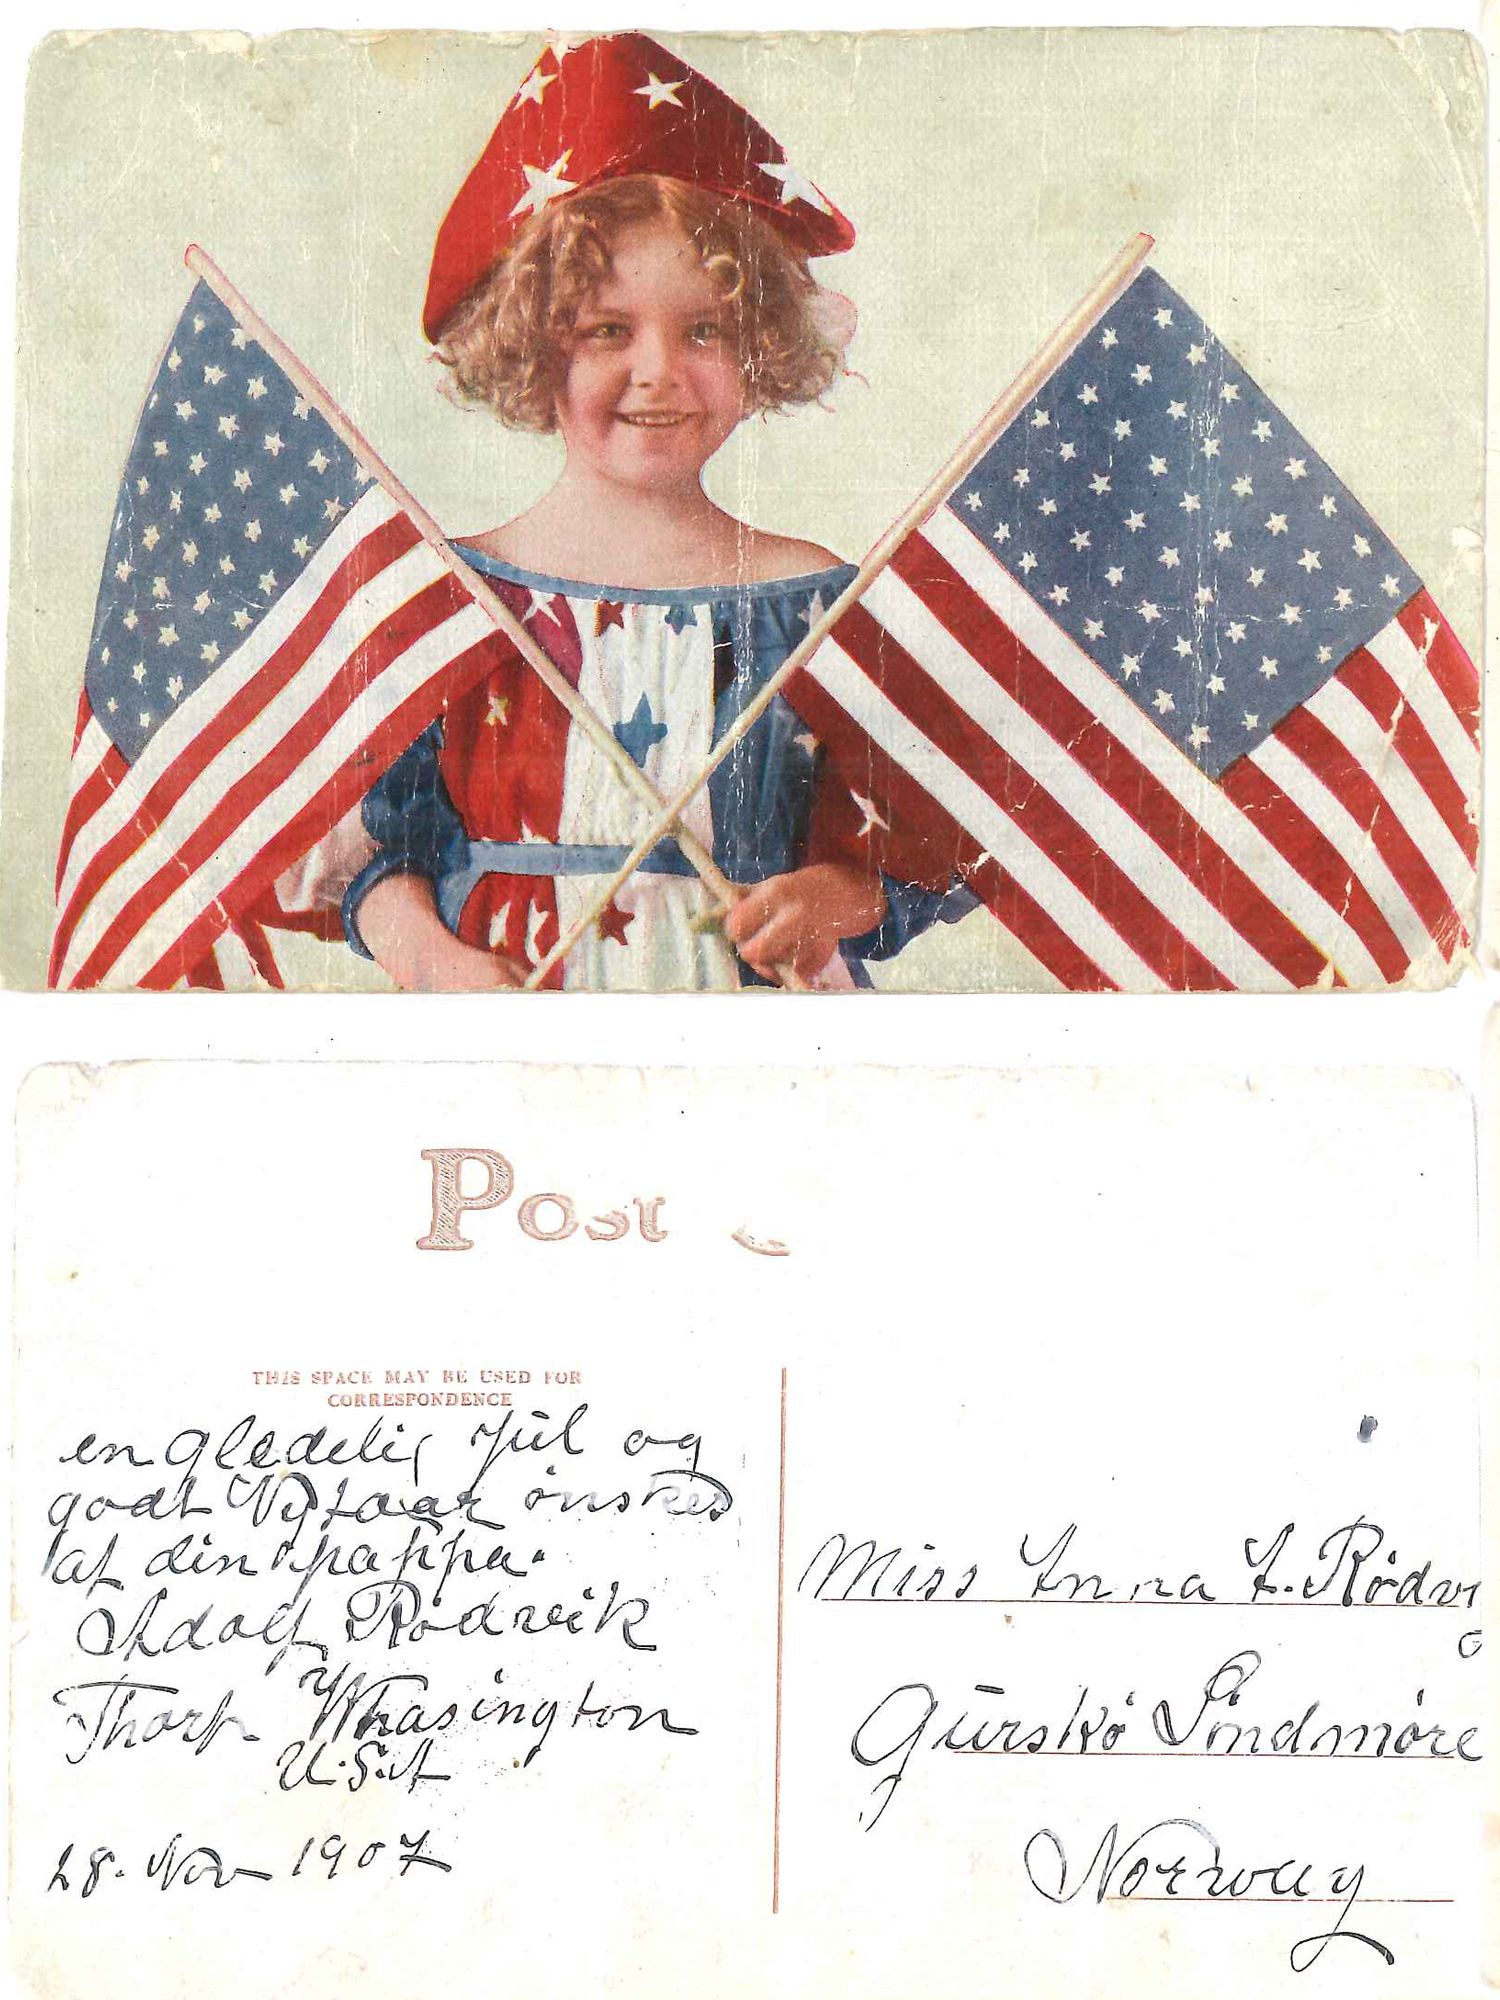 Post
THIS SPACE MAY BE USED FOR
CORRESPONDENCE
en gledelig Jul og
godt Nytaar önskes
af din pappa.
Adolf Rödvik
Thorp Whasington
U.S.A
28. Nov 1907
Miss Anna A. Rødvi
Gurskö Söndmöre
Norway